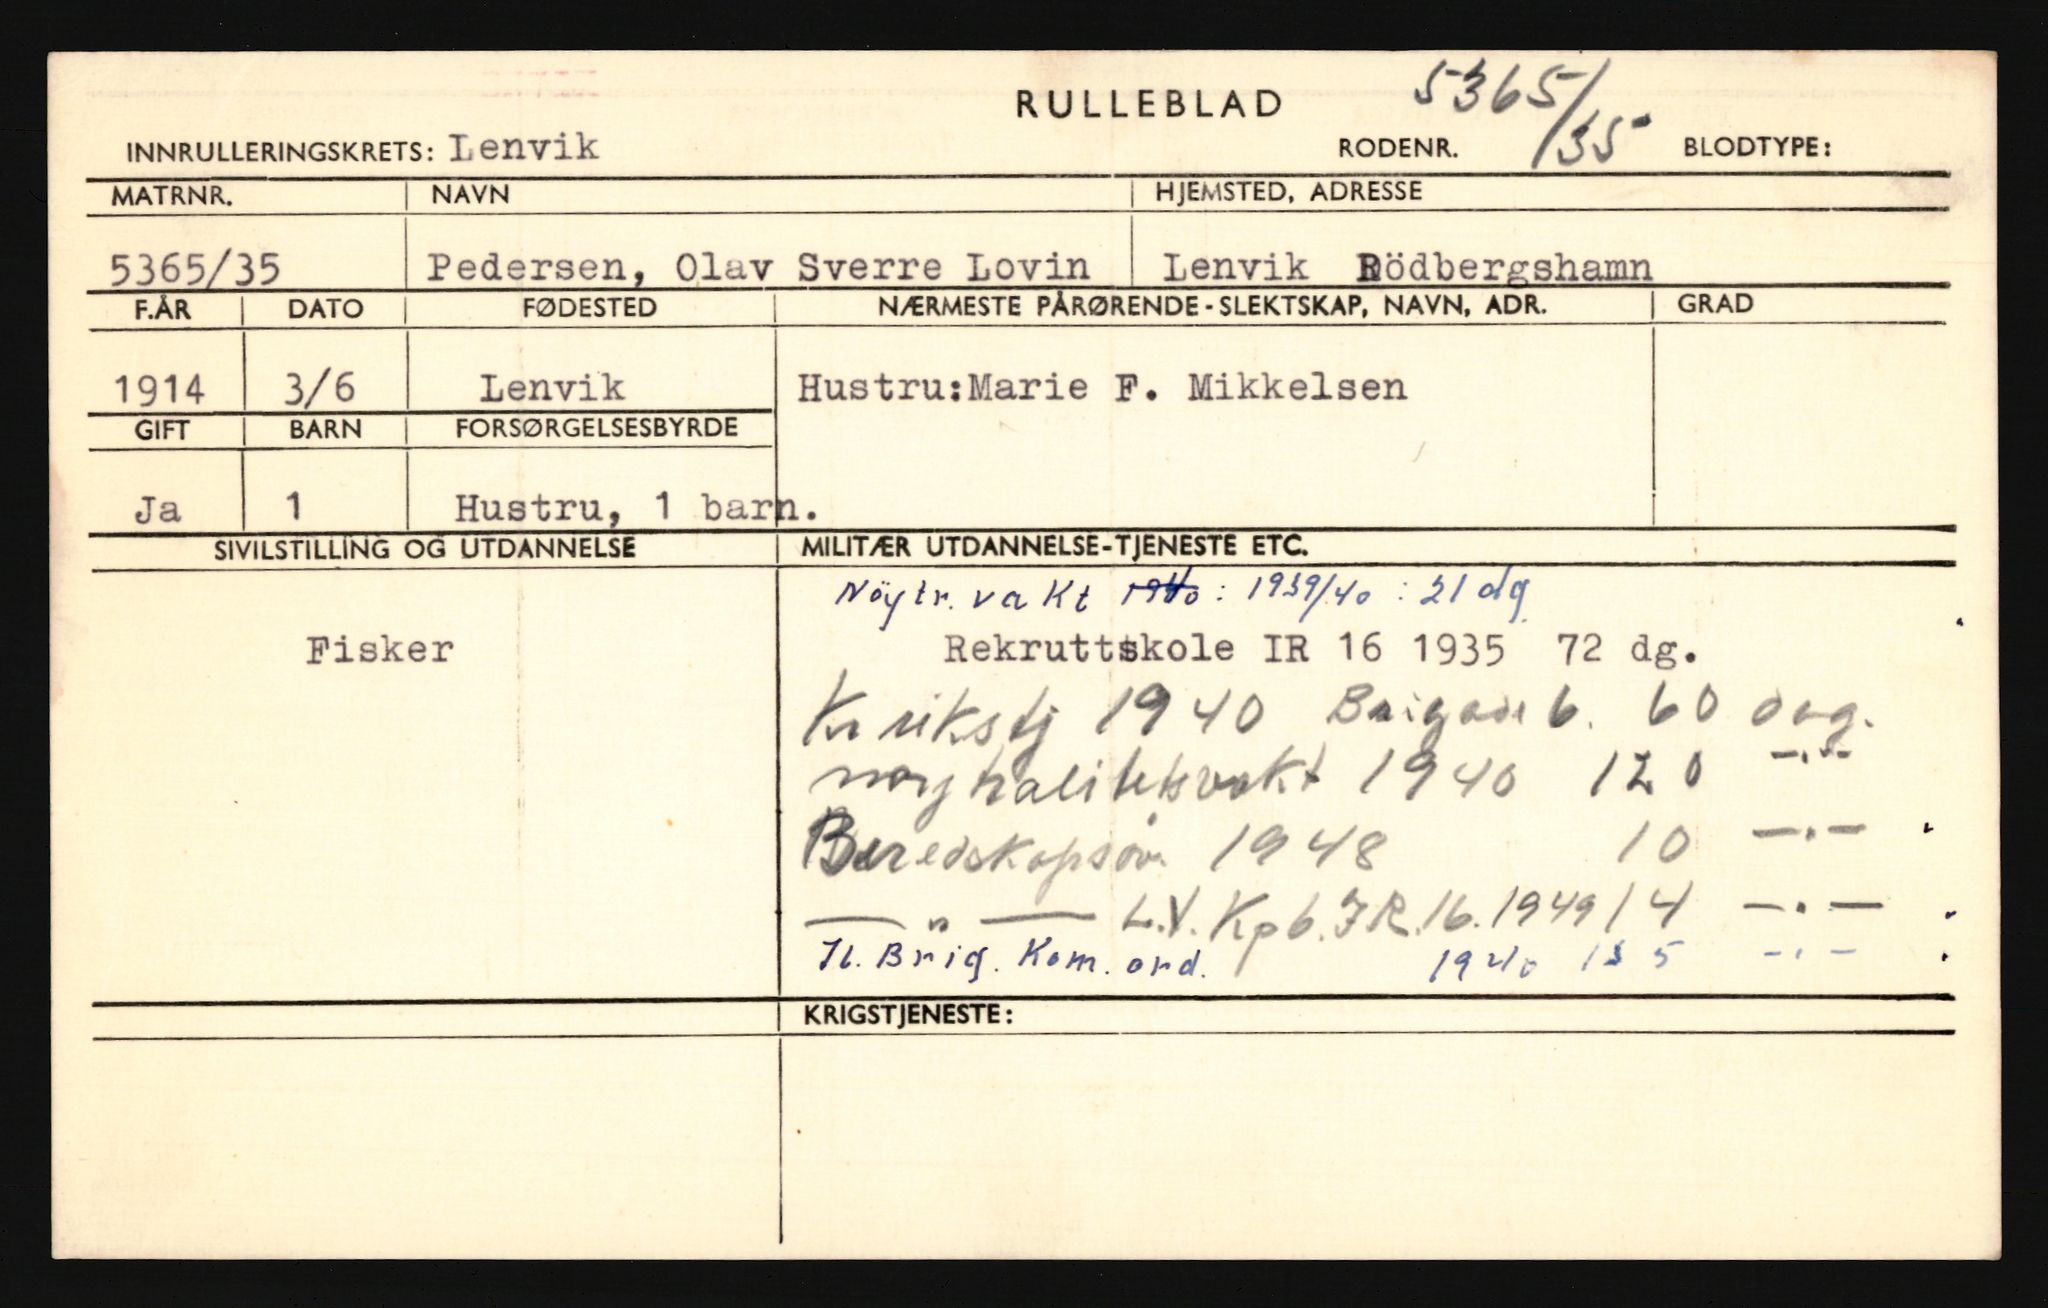 RULLEBLAD
5365/35
INNRULLERINGSKRETS: Lenvik RODENR. BLODTYPE:
MATRNR. NAVN HJEMSTED, ADRESSE
5365/35 Pedersen, Olav Sverre Lovin Lenvik Rödbergshamn
F.ÅR DATO FØDESTED NÆRMESTE PÅRØRENDE - SLEKTSKAP, NAVN, ADR. GRAD
1914 3/6 Lenvik Hustru:Marie F. Mikkelsen
GIFT BARN FORSØRGELSESBYRDE
Ja 1 Hustru, 1 barn.
SIVILSTILLING OG UTDANNELSE MILITÆR UTDANNELSE-TJENESTE ETC.
Nöytr. vakt 1940: 1939/40 : 21 dg
Fisker Rekruttskole IR 16 1935 72 dg.
1940 Brigade 6. 60 dag.
nøytralitetsvakt 1940 120 -.-
Beredskapsøv. 1948 10 -.-
— " — L.V. Kp 6. IR. 16. 1949 14 -.-
Brig. Kom. ord. 1940 135 -.-
KRIGSTJENESTE: